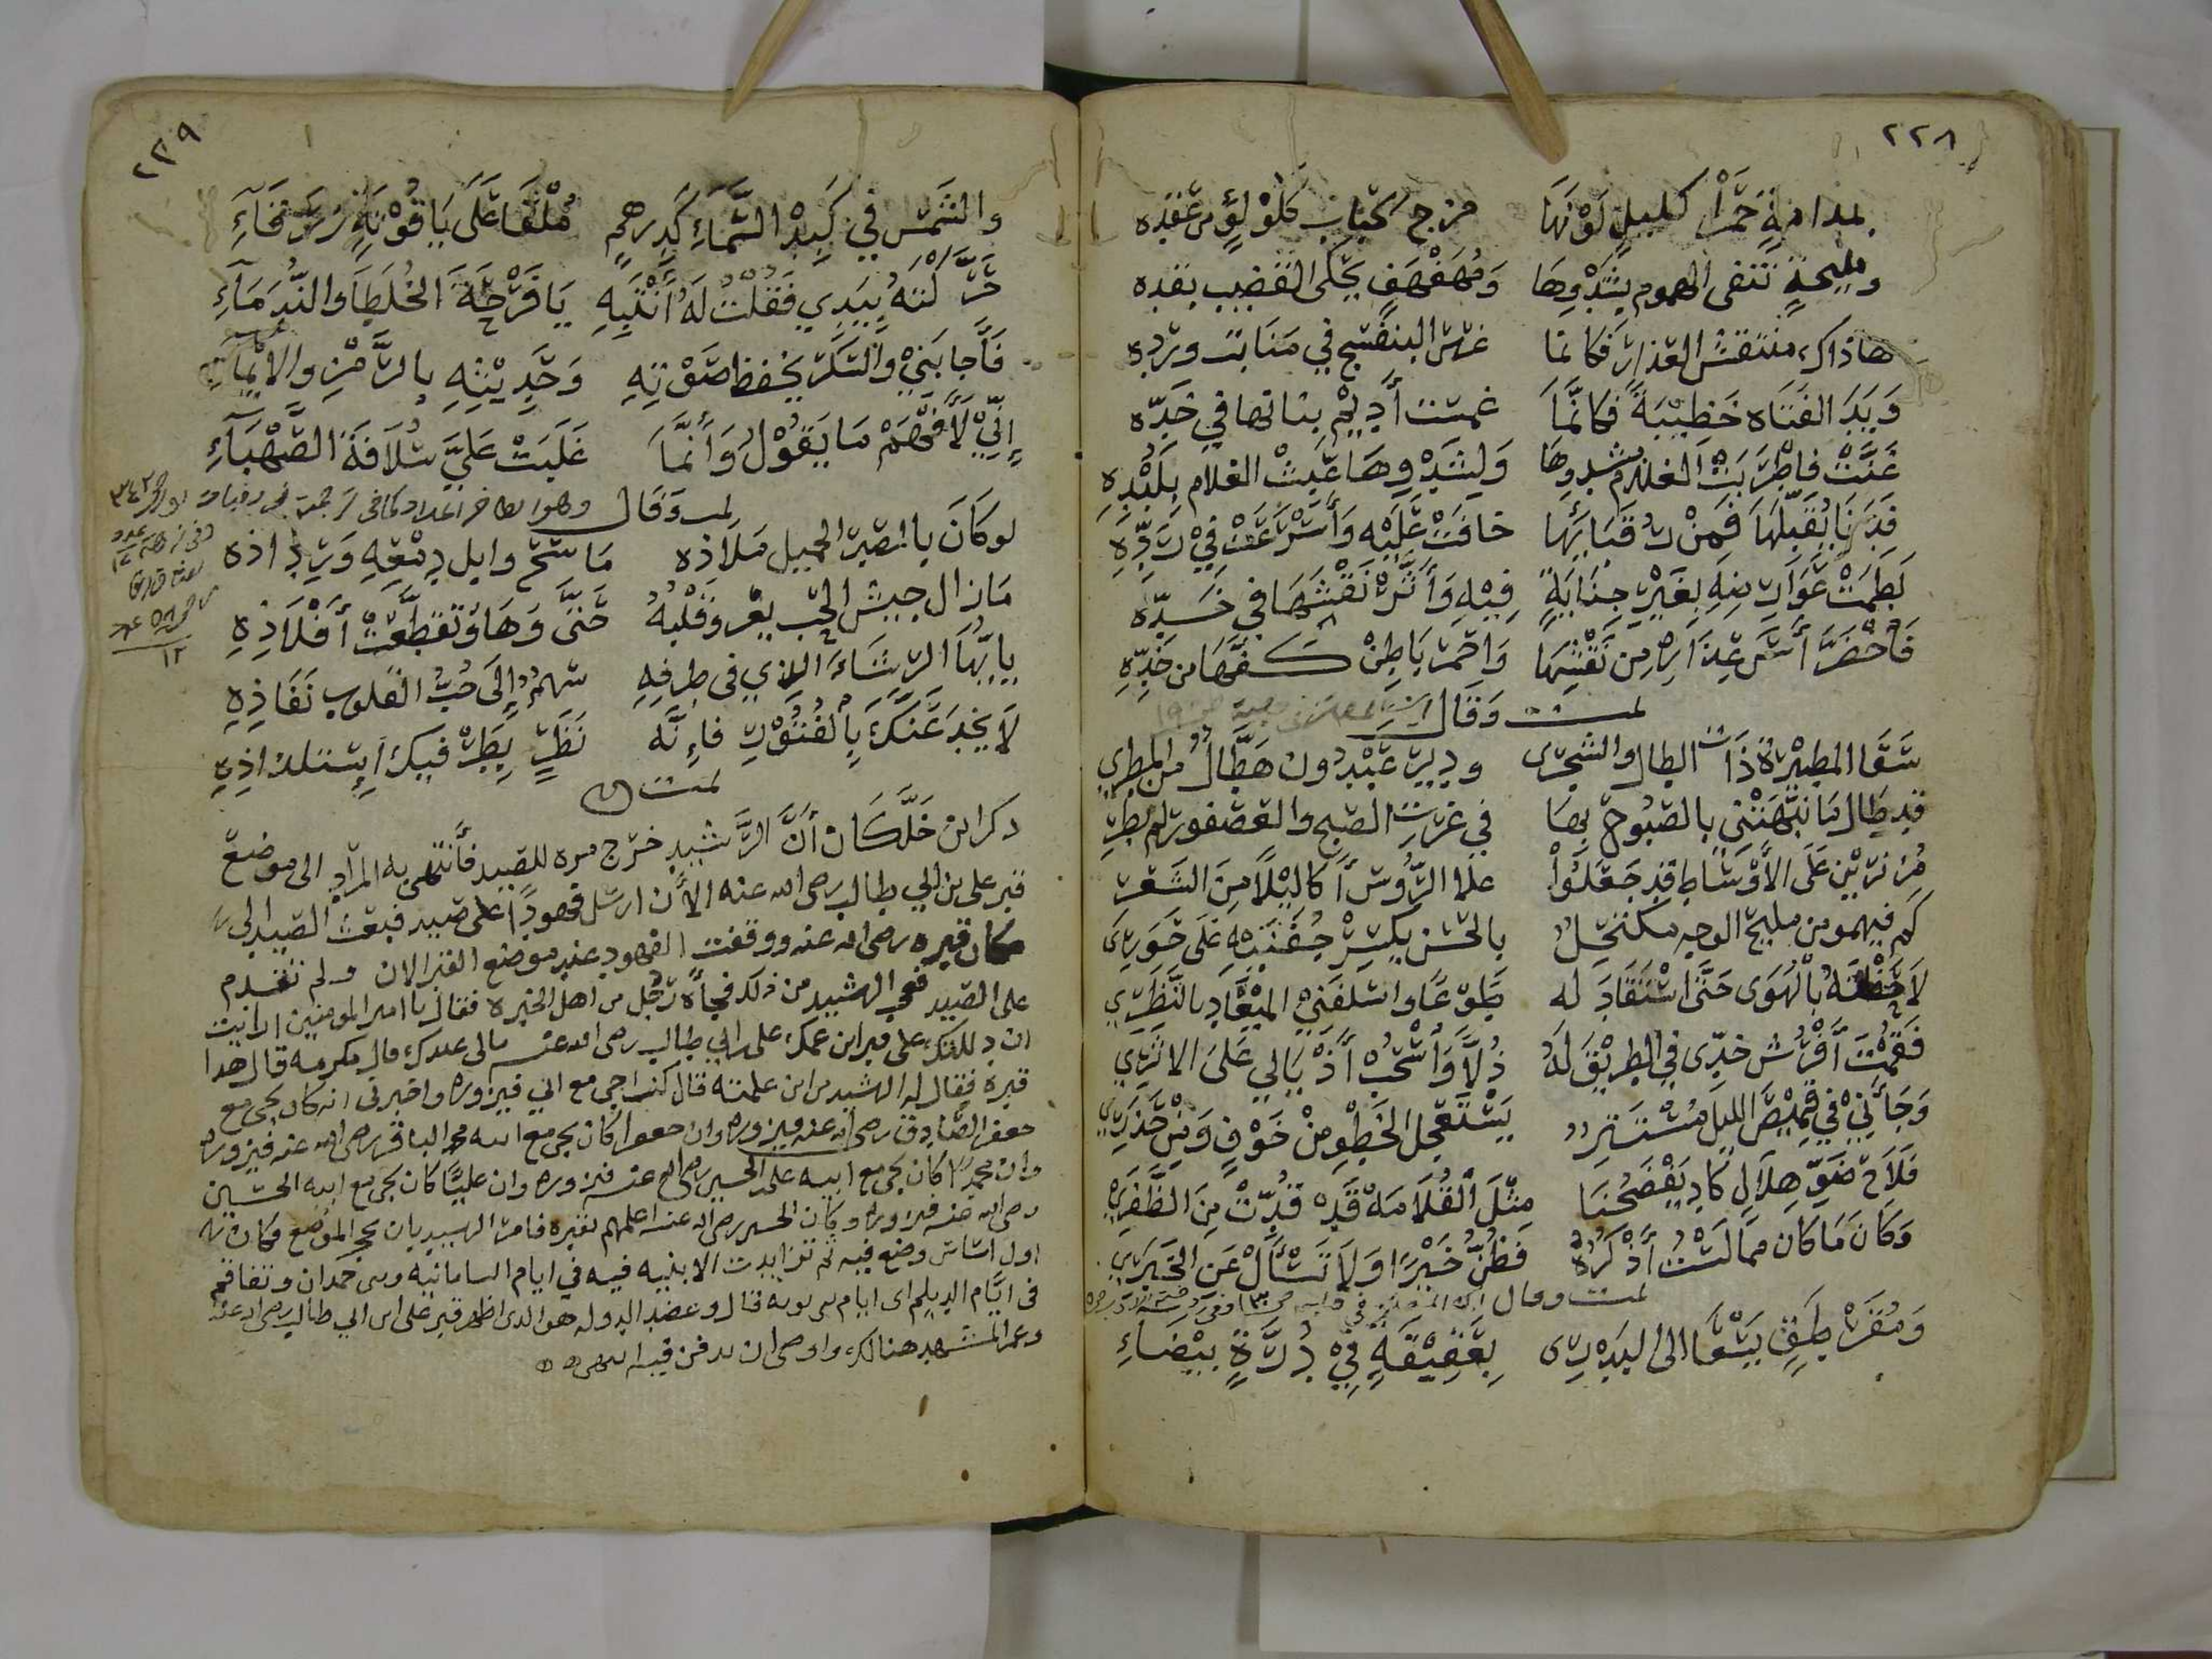 ٢٢٨
بمدامةٍ حَمْرا كليلٍ لَوْنهَا مزج الحباب كلوْلؤٍ من عقده
ومليحةٍ تنفى الهموم بشدوها وَمُهَفْهَفٍ يحكى القضيب بقده
هاذاك منتقش العذار فكانما غرس البنفسج في منابت ورده
وَيَدَ الفتاه خَضِيْبَةً فكانّما غمست أديم بنانها في خدّه
غَنَّتْ فاطْرَبَتْ الغلام بشدوها وَلِشَدْوِهَا عَبِثَ الغلام بِلَبْدِهِ
فَدَنَا يُقَبِّلُهَا فَمَنْ رقبائها خافَتْ عَلَيْهِ وَأَسْرَعَتْ فِيْ رَدِّهِ
لَطَمَتْ عَوَارِضِهِ بِغَيْرِ جِنَايَةٍ فِيْهِ وَأَثَّرْ نَقْشَهَا في خَدِّه
فَاخْضَرَّ أسّ عِذَارِهِ مِن نَقْشِهَا وَاحْمَرَّ بَاطِنُ كَفّهَا من خَدِّهِ
تمت وَقَال
سَقَا المطِيْرَةَ ذَاتَ الطال والشجرى وديرَ عَبْدون هَطَّالٌ من المطرِي
قد طَال مَا نَبَّهَتْنِي بالصَبُوحِ بِهَا في غرّت الصبح والعصفور لم يطرِ
مُزَنّرِيْنَ عَلَى الأوْسَاطِ قد جَعَلُوْا علا الرُّوسِ أكالِيْلًا مِنَ الشَعَرِ
كم فيهمو من مليح الوجهِ مكتحلٍ بالحُسْنِ يكسِرُ جُفْنَيْهِ عَلَى حَوَرِي
لَاحَظْتُهُ بالْهَوَى حَتَّى اسْتَقَادَ له طَوْعًا واسْلَفَنِيْ المِيْعَادِ بالنَّظَرِي
فَقُمْتُ أَفْرُش خدّى في الطرِيْقِ لَهُ ذُلَّا وَأَسْحَبُ أَذْيَالِي عَلَى الاثَرِي
وَجَأَنِيْ فِيْ قَمِيْصِ الليل مُسْتَتِرٍ يَسْتَعْجِل الخَطْوِ مِنْ خَوْفٍ وَمِنْ حَذَرِي
فَلَاحَ ضَوّ هِلَالٍ كَادَ يَفْضَحُنَا مِثْلَ الْقُلَامَةْ قَدْ قُدّتْ مِنَ الظُّفَرِي
وَكَانَ مَا كان مما لَسْتُ أَذْكُرُهُ فَظُنّ خَيْرًا وَلَا تَسْأَلْ عَنِ الخَبَرِي
تمت وقال
وَمُقَرْطَقٍ يَسْعَا الى النَدمَا بِعَقِيْقَةٍ فِيْ دُرّةٍ بيْضَاءِ
٢٢٩
والشمْسُ في كَبِدْ السَّمَاءِ كَدِرهمٍ مُلْقًا عَلَى يَاقُوْتَةٍ زَرْقَاءِ
حَرَّكْتُهُ بِيَدِي فَقلْتُ لَهُ أنْتَبِهِ يَا فَرْحَةَ الخُلَطِا وَالنُّدَمَاءِ
فَأَجابَنِيْ وَالسُّكَرُ يخفِظ صَوْتِهِ وَحَدِيْثِهِ بالرَّمْزِ والايْمَاءِ
إنِّيْ لَأَفْهَمْ مَا يَقُوْلُ وَأَنَّمَا غَلَبَتْ عَلَيَّ سُلَافَة الصَّهْبَاءِ
تمت وَقَال
لو كَانَ بالصَبْر الجميل مَلَاذه مَا سَحّ وابل دمْعِهِ وَرِذاذه
مَا زال جيش الحب يغزو قَلْبهُ حَتّى وَهَا وَتَقَطّعَتْ أَفْلَاذِهِ
يا أيُّهَا الرشَاءُ الذي في طرفِهِ سَهمٌ إلَى حُبّ القلوب نَفَاذِهِ
لَا يَخْدَعَنّكَ بالفُتُوْرِ فإنّه نَظَرٍ يَضُرّ فيك اسْتلذاذِهِ
تمت
ذكر ابن خَلّكَان أَنَّ الرَّشيد خرج مره للصيد فأنتهى به المراد الى موضع
قبر على بن ابي طالب رضى الله عنه الأن ارسل فهودًا على صيد فبعت الصيد الى
مكان قبره رضى الله عنه ووقفت الفهود عند موضع القبر الان ولم تقدم
على الصيد فعجب الرشيد من ذلك فجأه رَجُل من اهل الخبره فقال يا امير المومنين ارايت
ان دللتك على قبر ابن عمك على بن ابي طالب رضى الله عنه مالى عندك قال مكرمه قال هذا
قبره فقال له الرشيد من اين علمته قال كنت اجى مع ابي فيزوره واخبرنى انه كان يجى مع
جعفر الصّادق رضى الله عنه فيزوره وان جعفرا كان يجى مع ابيه محمد الباقر رضى الله عنه فيزوره
وان محمدًا كان يجى مع ابيه على بن الحسين رضى الله عنه فيزوره وان عليًّا كان يجى مع ابيه الحسين
رضى الله عنه فيزوره وكان الحسين رضى الله عنه اعلمهم بقبره فامر الرشيد بان يحجر الموضع فكان
اول اساس وضع فيه ثم تزايدت الابنيه فيه في ايام السامانيه وبنى حمدان وتفاقم
فى ايّام الديلم اى ايام بنى بويه قال وعضد الدوله هو الذى اظهر قبر على بن ابي طالب رضى الله عنه
وعمر المشهد هنالك واوصى ان يدفن فيه